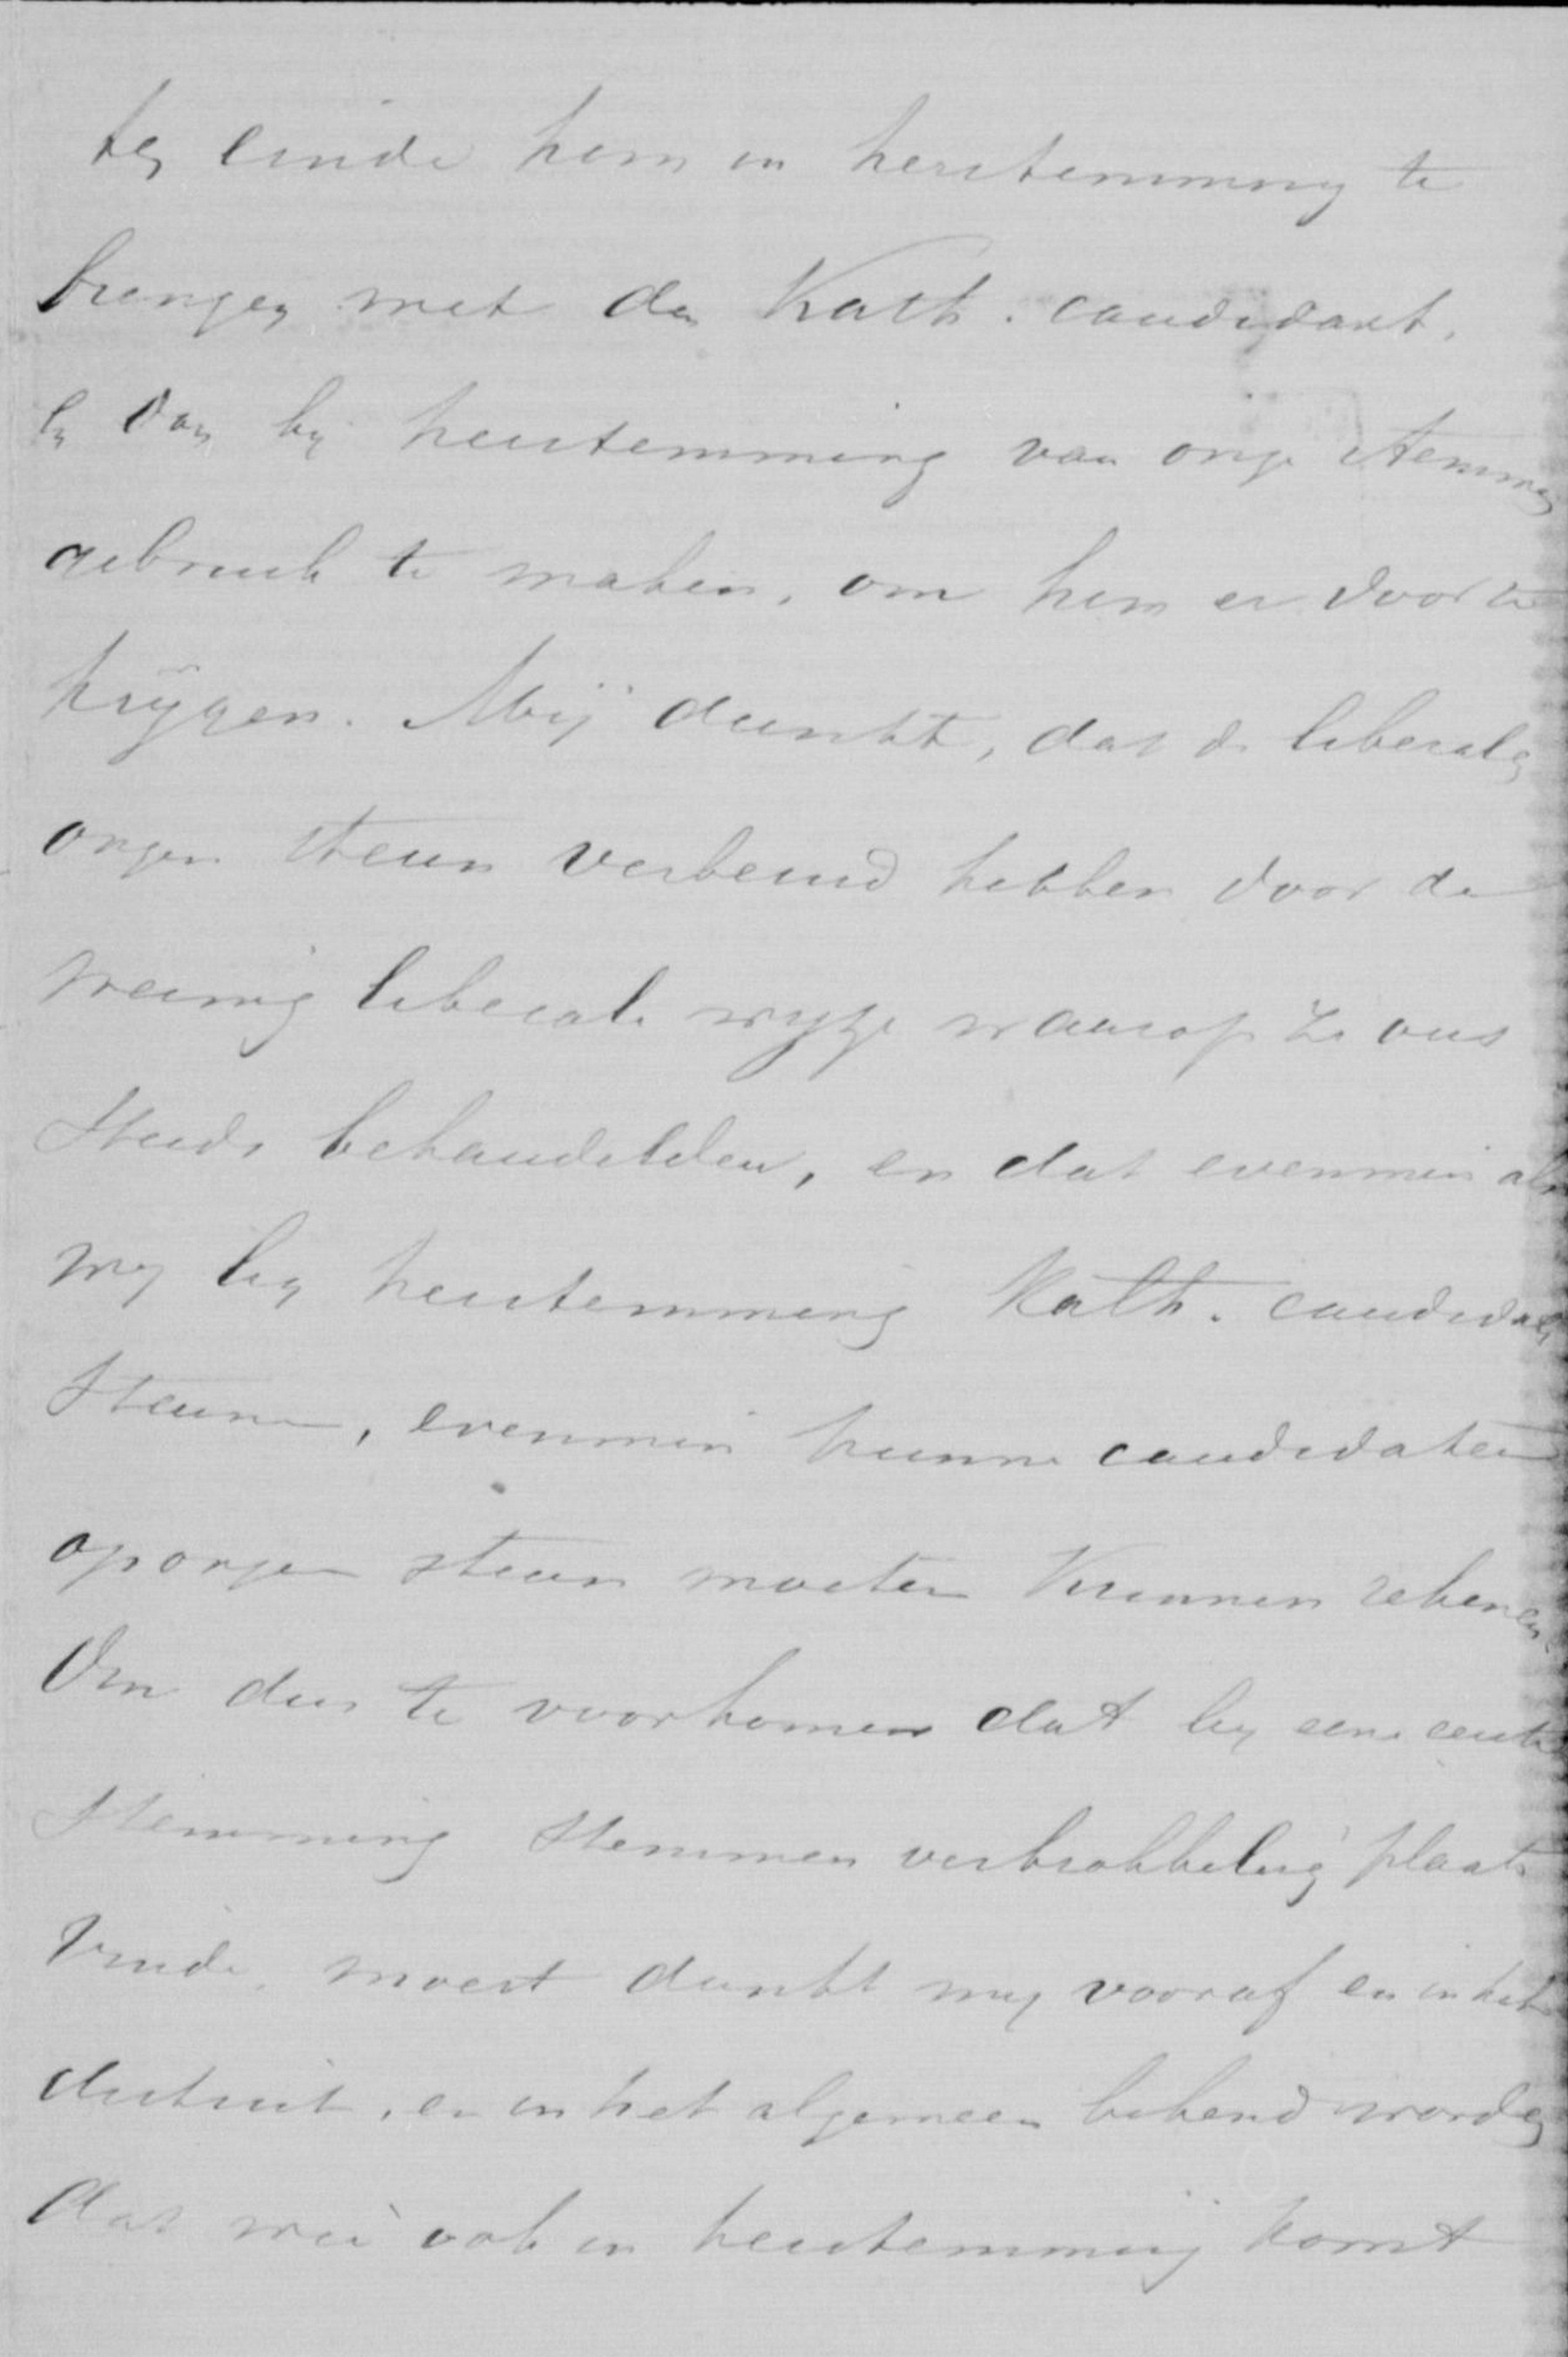 ten einde hem in herstemming te
brengen met den Kath. candidaat.
En dan by herstemming van onze stemmen
gebruik te maken, om hem er door te
krijgen. Mij dunkt, dat de liberalen
onzen steun verbeurd hebben door de
weinig liberale wyze waarop ze ons
steeds behandelden, en dat evenmin als
wy by herstemming Kath. candidaten
steunen, evenmin hunne candidaten
op onzen steun moeten kunnen rekenen.
Om dus te voorkomen dat by eene eerste
stemming stemmen verbrokkeling plaats
vinde, moest dunkt my vooraf en in het
district, en in het algemeen bekend worden
dat wie ook in herstemming komt